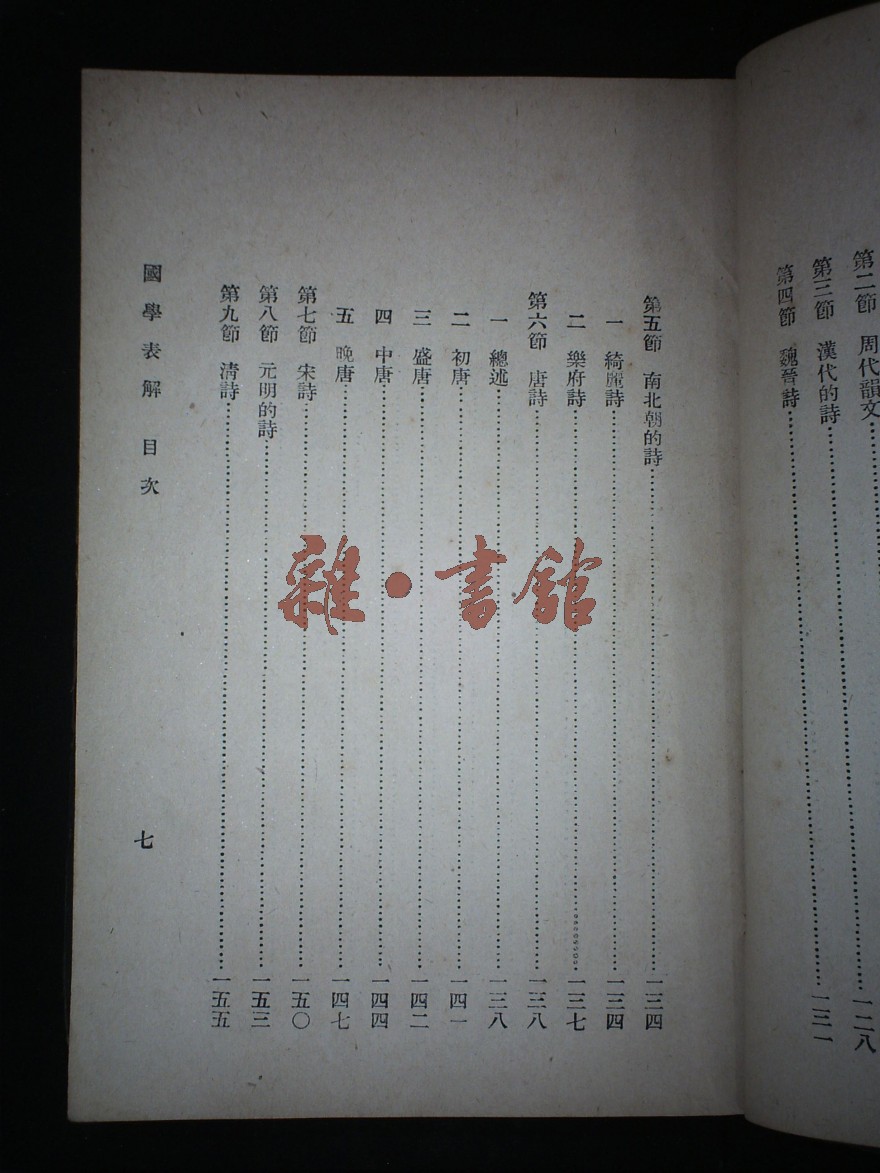 第二節　周代韻文………一二八
第三節　漢代的詩………一三一
第四節　魏晉詩………
第五節　南北朝的詩………一三四
一　綺麗詩………一三四
二　樂府詩………一三七
第六節　唐詩………一三八
一　總述………一三八
二　初唐………一四一
三　盛唐………一四二
四　中唐………一四四
五　晚唐………一四七
第七節　宋詩………一五〇
第八節　元明的詩………一五三
第九節　清詩………一五五
國學表解　目次
七
雜・書館